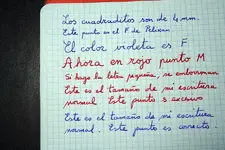 Los cuadraditos son de 4 mm.
Este punto es el F de Pelikan.
El color violeta es F
Ahora en rojo punto M
Si hago la letra pequeña, se emborronan
Este es el tamaño de mi escritura
normal. Este punto es excesivo
Este es el tamaño de mi escritura
normal. Este punto es correcto.